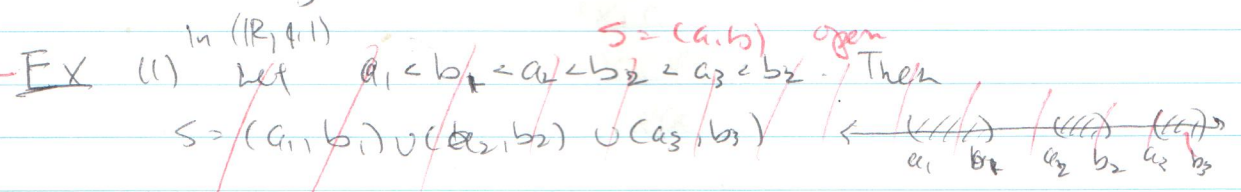 In (ℝ, |·|) S = (a,b) open
Ex (1) Let a₁ < b₁ < a₂ < b₂ < a₃ < b₂. Then
S = (a₁, b₁) ∪ (a₂, b₂) ∪ (a₃, b₃)
a₁ b₁ a₂ b₂ a₃ b₃